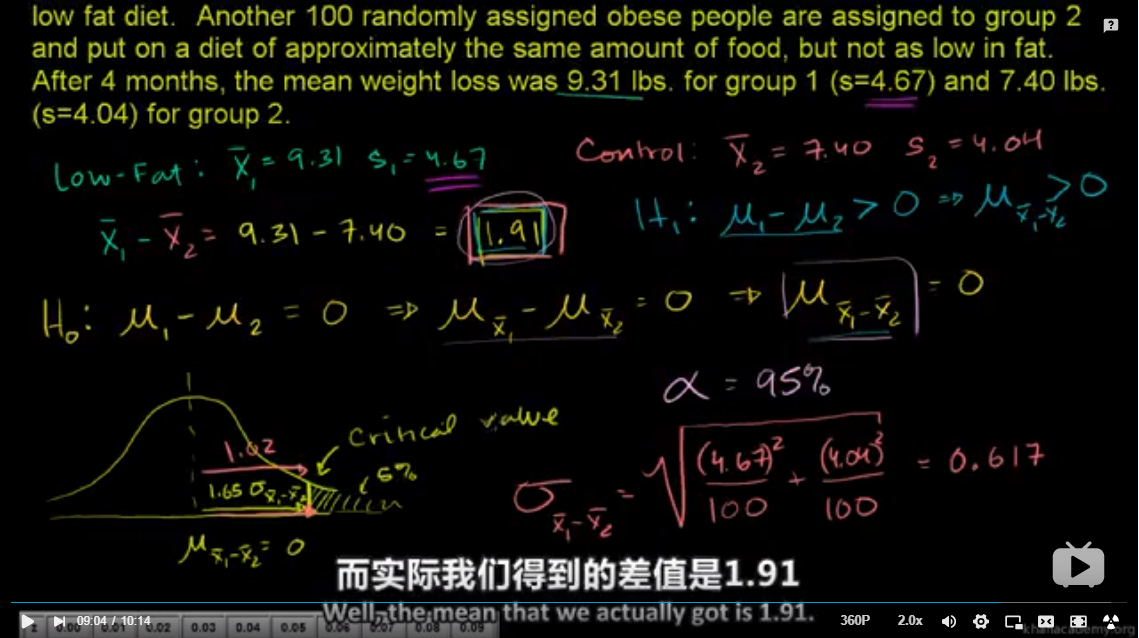 low fat diet. Another 100 randomly assigned obese people are assigned to group 2
and put on a diet of approximately the same amount of food, but not as low in fat.
After 4 months, the mean weight loss was 9.31 lbs. for group 1 (s=4.67) and 7.40 lbs.
(s=4.04) for group 2.
Low-Fat: x̄₁ = 9.31 s₁ = 4.67
Control: x̄₂ = 7.40 s₂ = 4.04
x̄₁ - x̄₂ = 9.31 - 7.40 = 1.91
H₁: μ₁ - μ₂ > 0 ⇒ μ_x̄₁-x̄₂ > 0
H₀: μ₁ - μ₂ = 0 ⇒ μ_x̄₁ - μ_x̄₂ = 0 ⇒ μ_x̄₁-x̄₂ = 0
α = 95%
Critical value
1.02
5%
1.65 σ_x̄₁-x̄₂
σ_x̄₁-x̄₂ = √((4.67)²/100 + (4.04)²/100) = 0.617
μ_x̄₁-x̄₂ = 0
而实际我们得到的差值是1.91
Well, the mean that we actually got is 1.91.
09:04 / 10:14
360P 2.0x
z 0.00 0.01 0.02 0.03 0.04 0.05 0.06 0.07 0.08 0.09
khanacademy.org